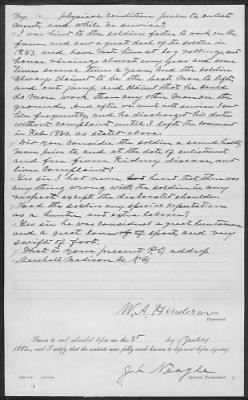 physical condition prior to enlist
ment, and while in service?
I was hired to the soldier's father to work on the
farm and saw a great deal of the soldier in
1847, and have been at log rollings and
house raisings almost every year and some
times several times a year, and the soldier
always claimed to be the stout man to lift,
and out jump, and claimed that he could
do more work than any other man on the
grounds. And after we went into service I saw
him frequently, and he discharged his duties
without complaint until I left the command
in Feb. 1864. as stated above.
Did you consider the soldier a sound healthy
man, prior to, and at the date of enlistment
and free from Kidney disease, and
liver Complaint?
Yes sir. I had never heard that there was
any thing wrong with the soldier in any
respect except the dislocated shoulder.
Had the soldier any special reputations
as a hunter, and extra laborer?
Yes sir he was considered a great huntsman
and a great lover of the sport, and very
swift of foot.
What is your present P.O. address
Marshall Madison Co. N.C.
W. A. Henderson
Deponent.
Sworn to and subscribed before me this 25" day of
188, and I certify that the contents were fully made known to deponent before signing.
J. L. Nagle
Special Examiner.